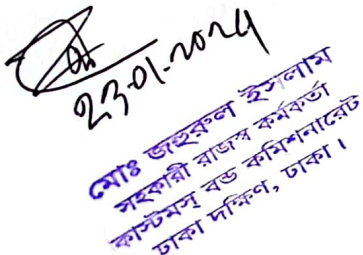 23.01.2024
মোঃ জহুরুল ইসলাম
সহকারী রাজস্ব কর্মকর্তা
কাস্টমস্ বন্ড কমিশনারেট
ঢাকা দক্ষিণ, ঢাকা।